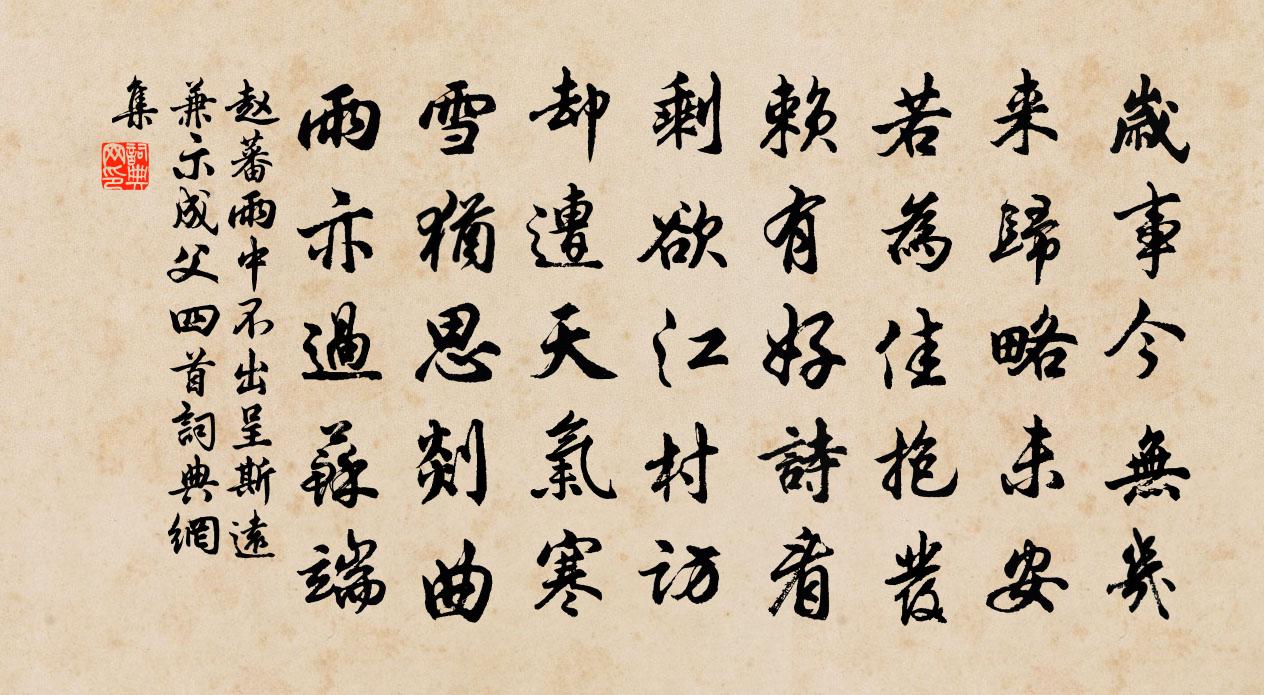 歲事今無幾
来歸略未安
若為佳抱發
賴有好詩看
剩欲江村訪
却遭天氣寒
雪猶思剡曲
雨亦過蘇端
赵蕃雨中不出呈斯遠
兼示成父四首詞典網
集
詞典網印